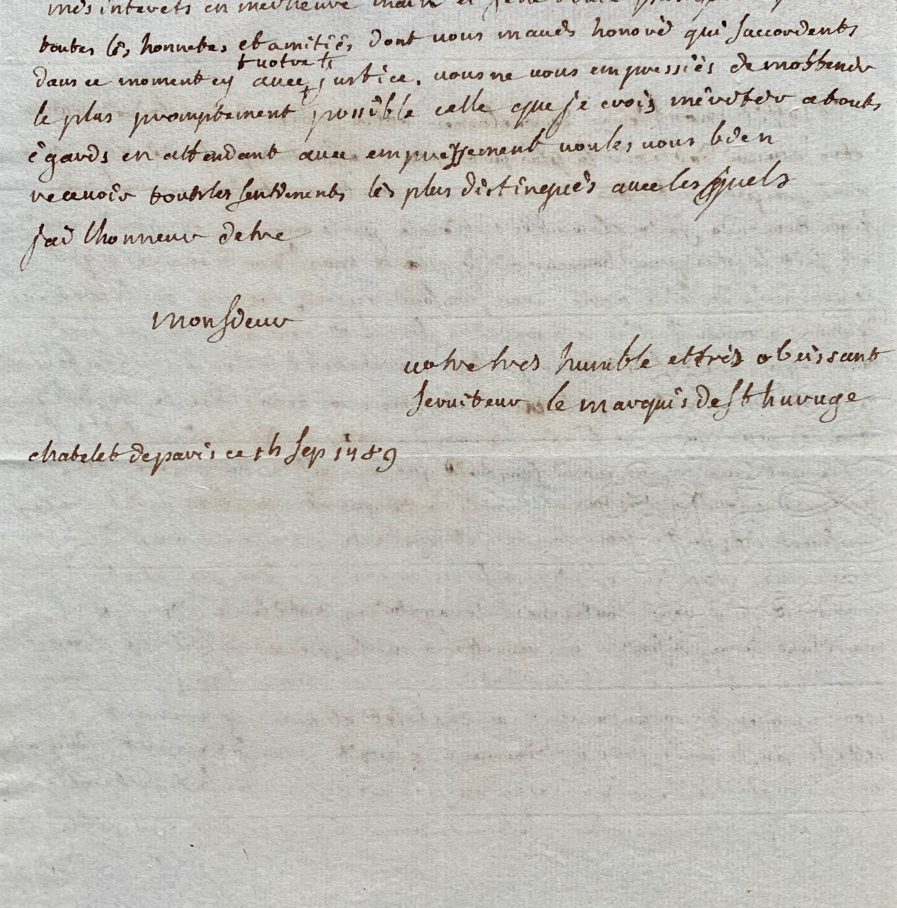 mes interets en meilleure main et je ne doute plus
toutes les honnetes et amitiés dont vous maves honoré qui saccordents
votre
dans ce moment cy avec justice. vous ne vous empressiés de mobtenir
le plus promptement possible celle que je crois meriter a touts
égards en attendant avec empressement voules vous bien
recevoir touts les sentiments les plus distingués avec les quels
jai lhonneur detre
monsieur
votre tres humble et tres obeissant
serviteur le marquis de st huruge
chatelet de paris ce sep 1789